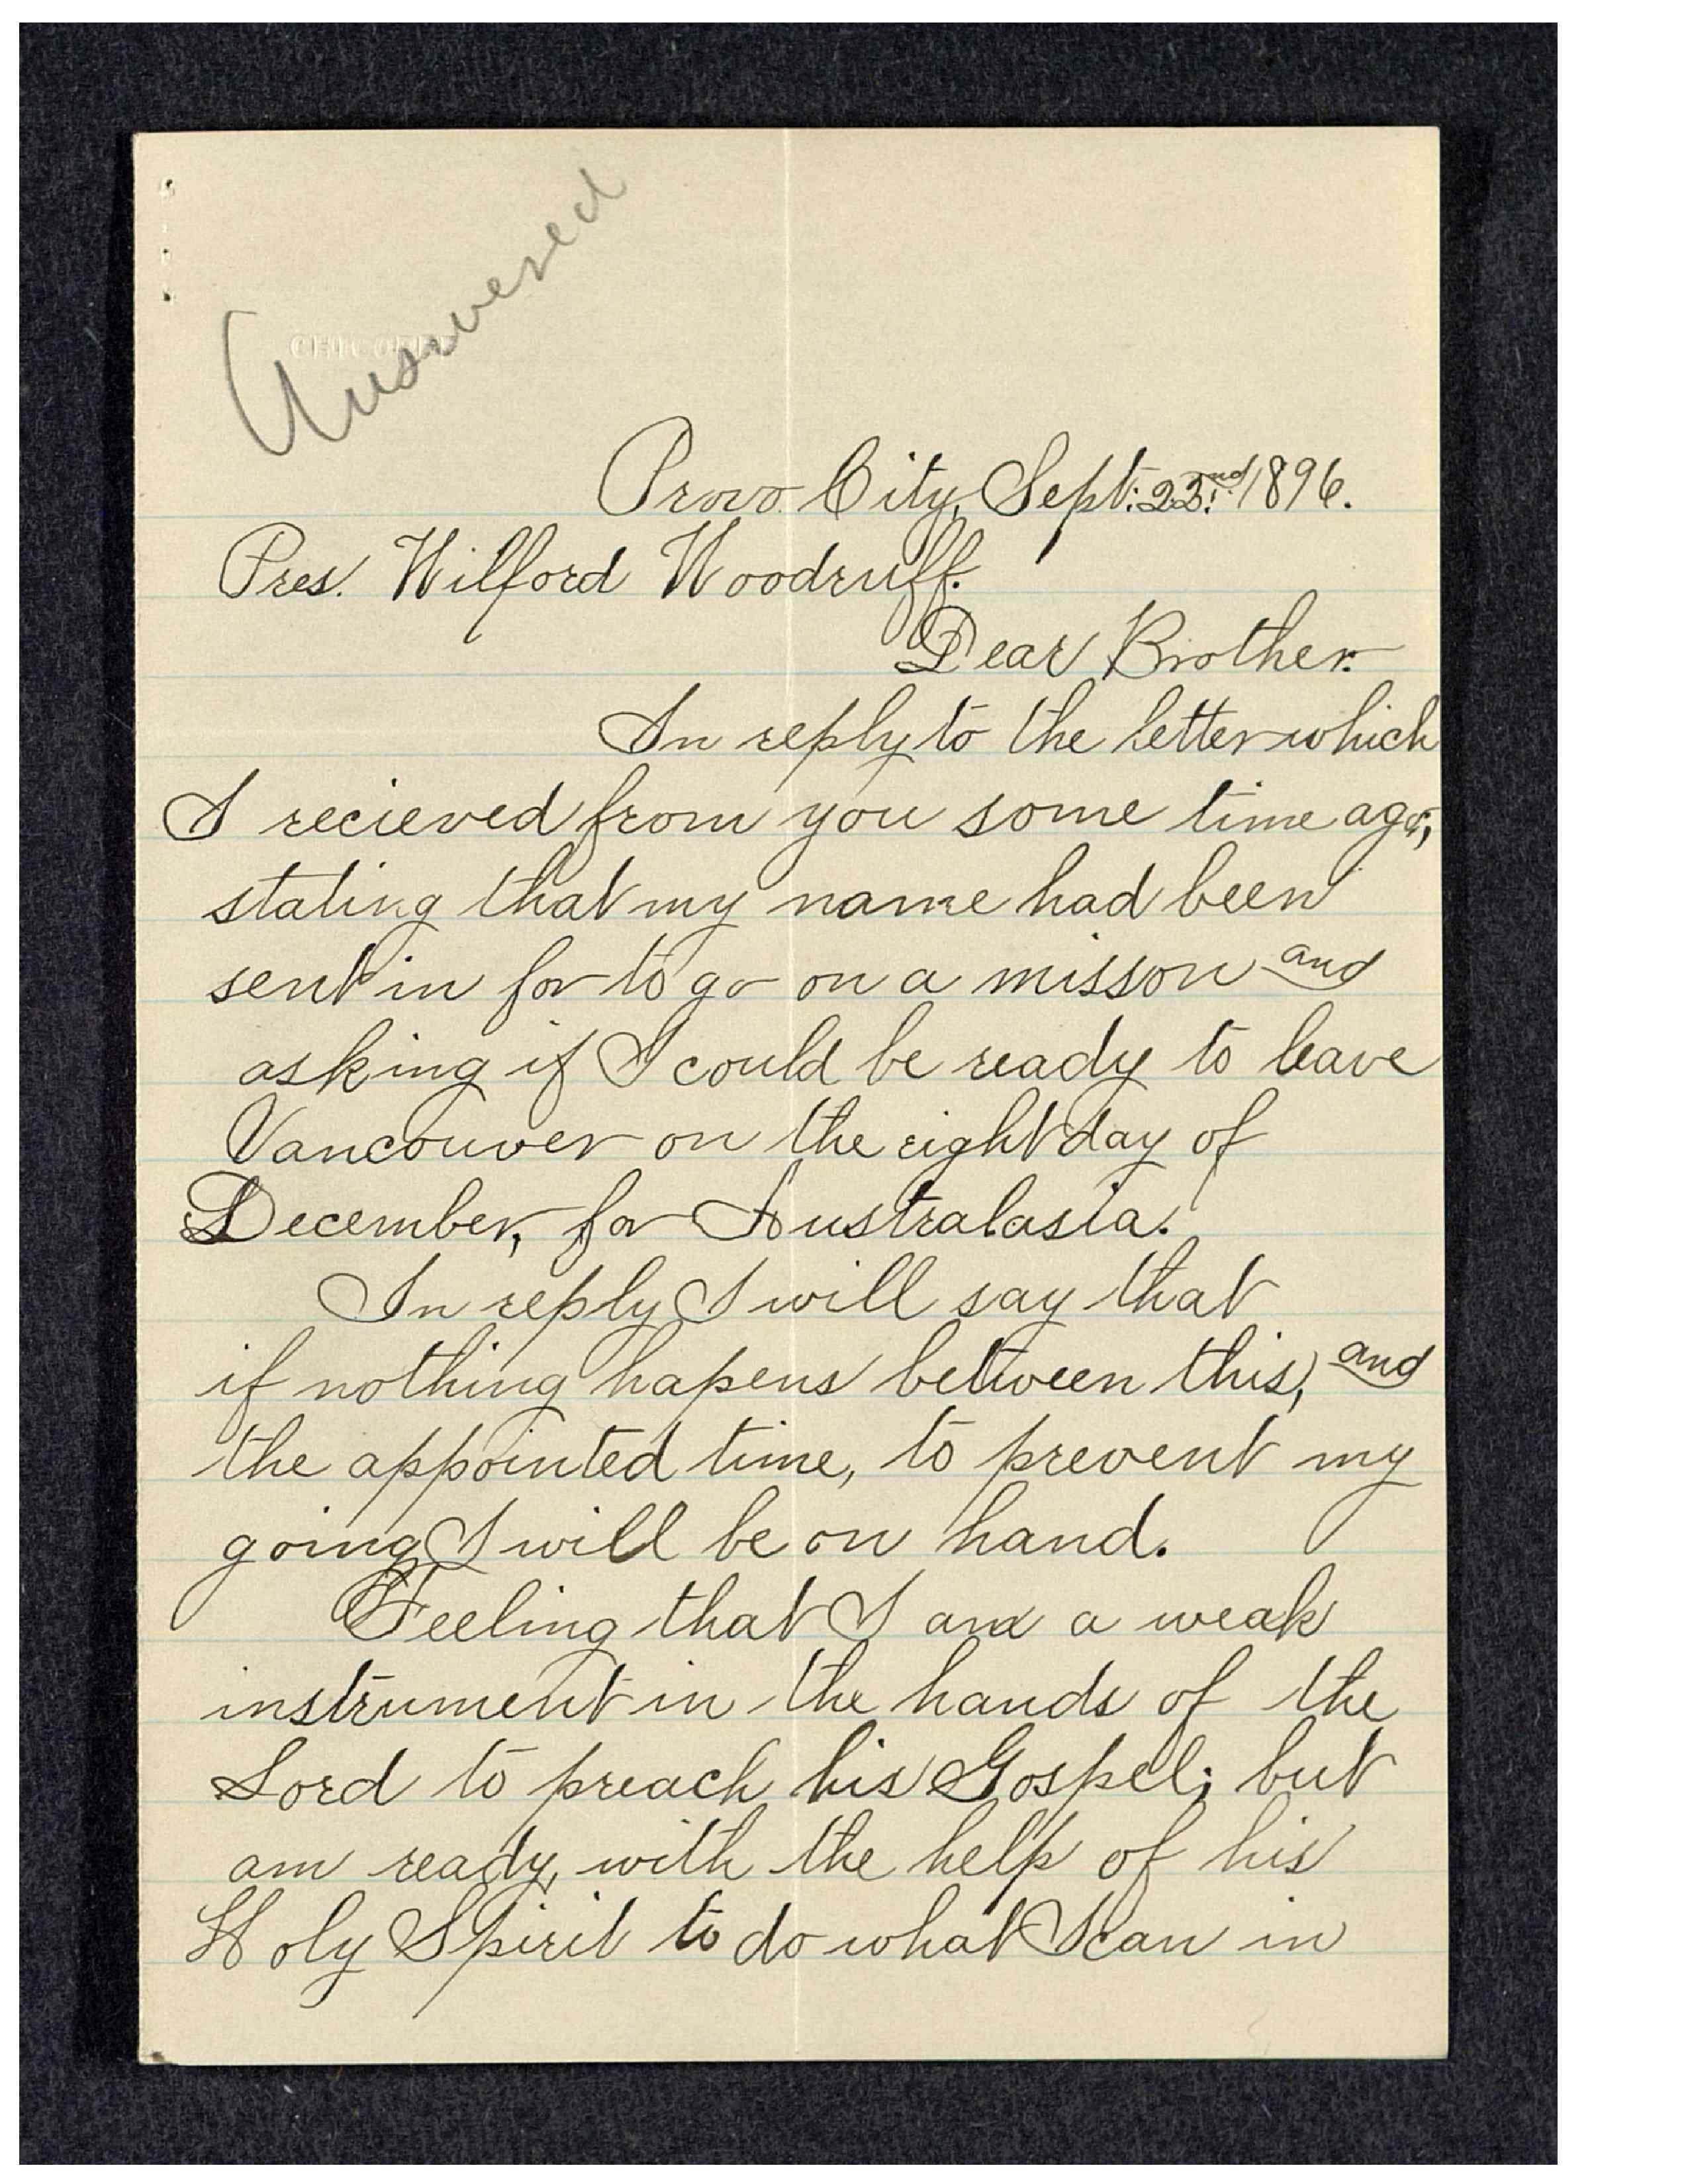 Answered
Provo City, Sept. 22nd 1896.
Pres. Wilford Woodruff.
Dear Brother:
In reply to the letter which
I recieved from you some time ago,
stating that my name had been
sent in for to go on a misson and
asking if I could be ready to leave
Vancouver on the eight day of
December, for Australasia.
In reply I will say that
if nothing hapens between this, and
the appointed time, to prevent my
going I will be on hand.
Feeling that I am a weak
instrument in the hands of the
Lord to preach his Gospel; but
am ready, with the help of his
Holy Spirit to do what I can in